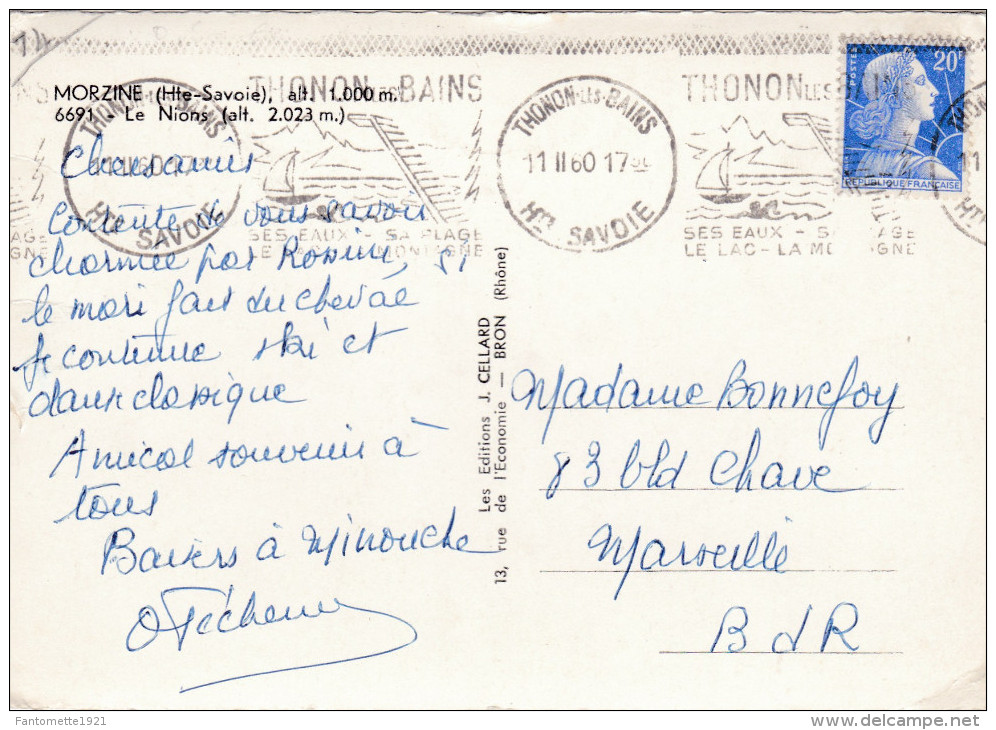 14
MORZINE (Hte-Savoie), alt. 1.000 m.
6691 - Le Nions (alt. 2.023 m.)
Chers amis
Contente de vous savoir
charmée par
le mari fait du cheval
Je continue ski et
danse classique
Amical souvenir à
tous
Baisers à Minouche
THONON LES BAINS
SES EAUX - SA PLAGE
LE LAC - LA MONTAGNE
THONON-LES-BAINS
11 II 60
HTE SAVOIE
THONON-LES-BAINS
11 II 60 17
HTE SAVOIE
THONON LES BAINS
SES EAUX - SA PLAGE
LE LAC - LA MONTAGNE
POSTES
20F
REPUBLIQUE FRANÇAISE
Les Editions J. CELLARD
13, rue de l'Economie — BRON (Rhône)
Madame Bonnefoy
83 bld Chave
Marseille
B d R
Fantomette1921
delcampe.net